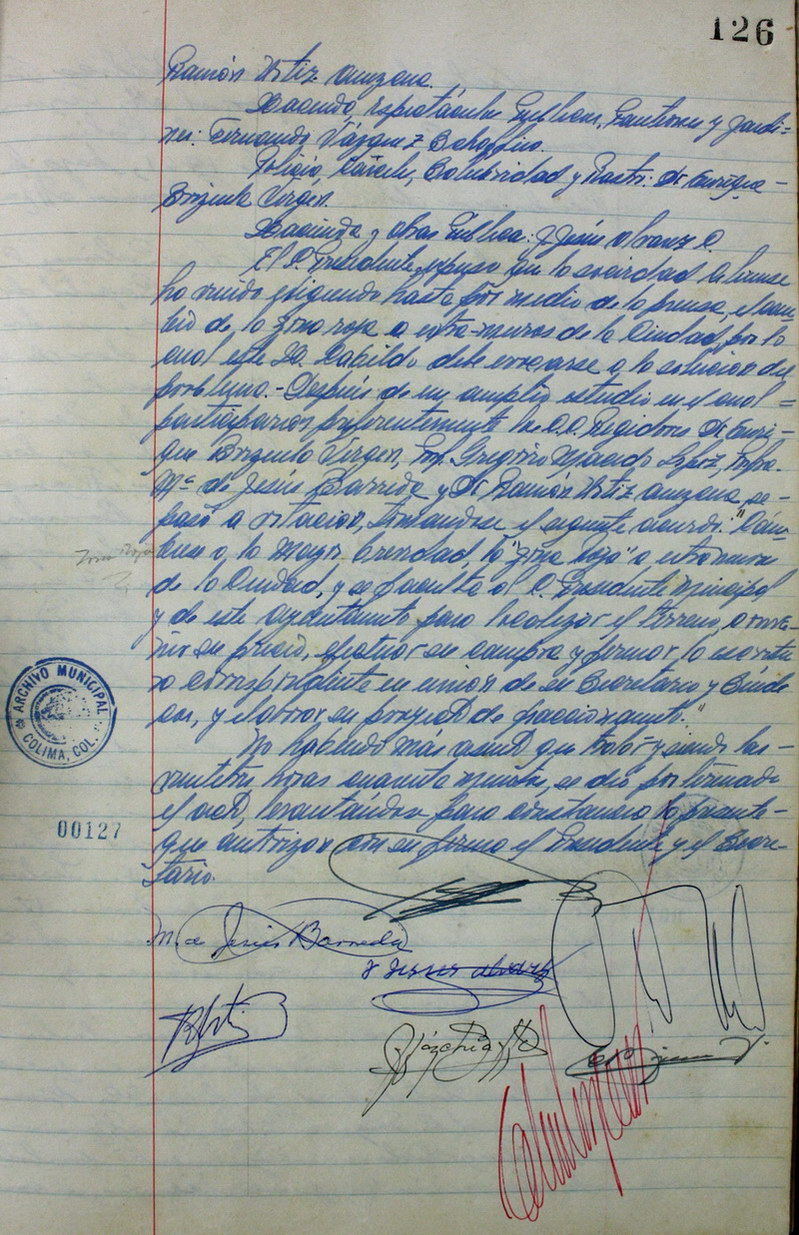 126
Ramón Ortiz Anzana.
Hacienda, espectáculos Públicos, Panteones y Jardi-
nes: Fernando Vázquez
Policía, Cárcel, Salubridad y Rastro: Dr. Enrique
Brizuela Virgen.
Hacienda y obras Públicas: J. Jesús Alvarez O.
El C. Presidente expuso que la sociedad colimense
ha venido exigiendo hasta por medio de la prensa, el cam-
bio de la zona roja a extra-muros de la Ciudad, por lo
cual este H. Cabildo debe avocarse a la solución del
problema.- Después de un amplio estudio en el cual
participaron preferentemente los C.C. Regidores Dr. Enri-
que Brizuela Virgen, Prof. Gregorio Macedo López, Profra.
Ma. de Jesús Barreda y Dr. Ramón Ortiz Anzana se
pasó a votación, tomándose el siguiente acuerdo: "Cám-
biese a la mayor brevedad la "zona roja" a extramuros
de la Ciudad, y se faculta al C. Presidente Municipal
y de este ayuntamiento para localizar el terreno, conve-
nir su precio, efectuar su compra y firmar la escritu-
ra correspondiente en unión de su Secretario y Síndi-
co, y elaborar su proyecto de fraccionamiento."
No habiendo más asunto que tratar y siendo las
veintitrés horas cuarenta minutos, se dió por terminado
el acto, levantándose para constancia la presente
que autorizan con su firma el Presidente y el Secre-
tario.
Zona Roja
ARCHIVO MUNICIPAL
COLIMA, COL.
00127
M. de Jesús Barreda
J Jesus Alvarez